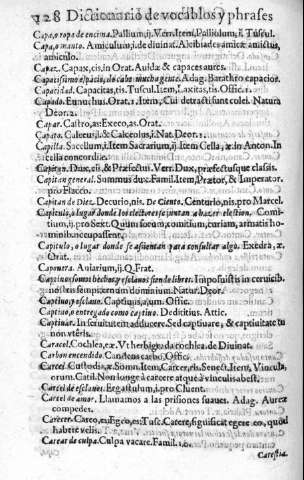 128 Diccionario de vocablos y phrases
Capa, o ropa de encima. Pallium, ij. Verr. Item, Palliolum, ij. Tuscul.
Capa, o manto. Amiculum, i. de diuinat. Alcibiades amicæ amictus,
amiculo.
Capaz. Capax, cis, in Orat. Auidæ & capaces aures.
Adag. Barathro capacior.
Capacidad. Capacitas, tis. Tuscul. Item, Laxitas, tis. Offic. 1.
Capado. Eunuchus. Orat. 1. Item, Cui detracti sunt colei. Natura
Deor. 2.
Capar. Castro, as. Execo, as. Orat.
Capato. Calceus, i. & Calceolus, i. Nat. Deor. 1.
Capilla. Sacellum, i. Item Sacrarium, ij. Item Cella, æ. in Anton. In
cella concordiæ.
Capitan. Dux, cis, & Præfectus. Verr. Dux, præfectusque classis.
Capitan general. Summus dux. Fami. Item, Prætor, & Imperator.
pro Flacco.
Capitan de Diez. Decurio, nis. De Ciento. Centurio, nis, pro Marcel.
Capitulo, o lugar donde los electores se juntan a hazer election. Comi-
tium, ij. pro Sext. Quum forum, comitium, curiam, armatis ho-
minibus occupassent.
Capitulo, o lugar donde se assientan para consultar algo. Exedra, æ.
Orat.
Caponera. Auiarium, ij. Q. Frat.
Captiuos
bus semper eram dominium. Natur. Deor.
Captiuo, o esclauo. Captiuus, a, um. Offic.
Captiuo, o entregado como captiuo. Dedititius. Attic.
Captiuar. In seruitutem adducere. Sed captiuare, & captiuitate tu
non vteris.
Caracol. Cochlea, eæ. Vt herbigrada cochlea de Diuinat.
Carbon encendido. Candens carbo, Offic.
Carcel. Custodia, æ. Somn. Item, Carcer, eris. Senect. Item, Vincula,
orum. Catil. Non longè à carcere atque à vinculis abest.
Carcel de esclauos. Ergastulum, i. pro Cluent.
Carcel de amor. Llamamos a las prisiones suaues. Adag. Aureæ
compedes.
Carecer. Careo, es. Egeo, es. Tusc. Carere, significat egere eo, quod
habere velis.
Carear de culpa. Culpa vacare. Famil.
Carestia.